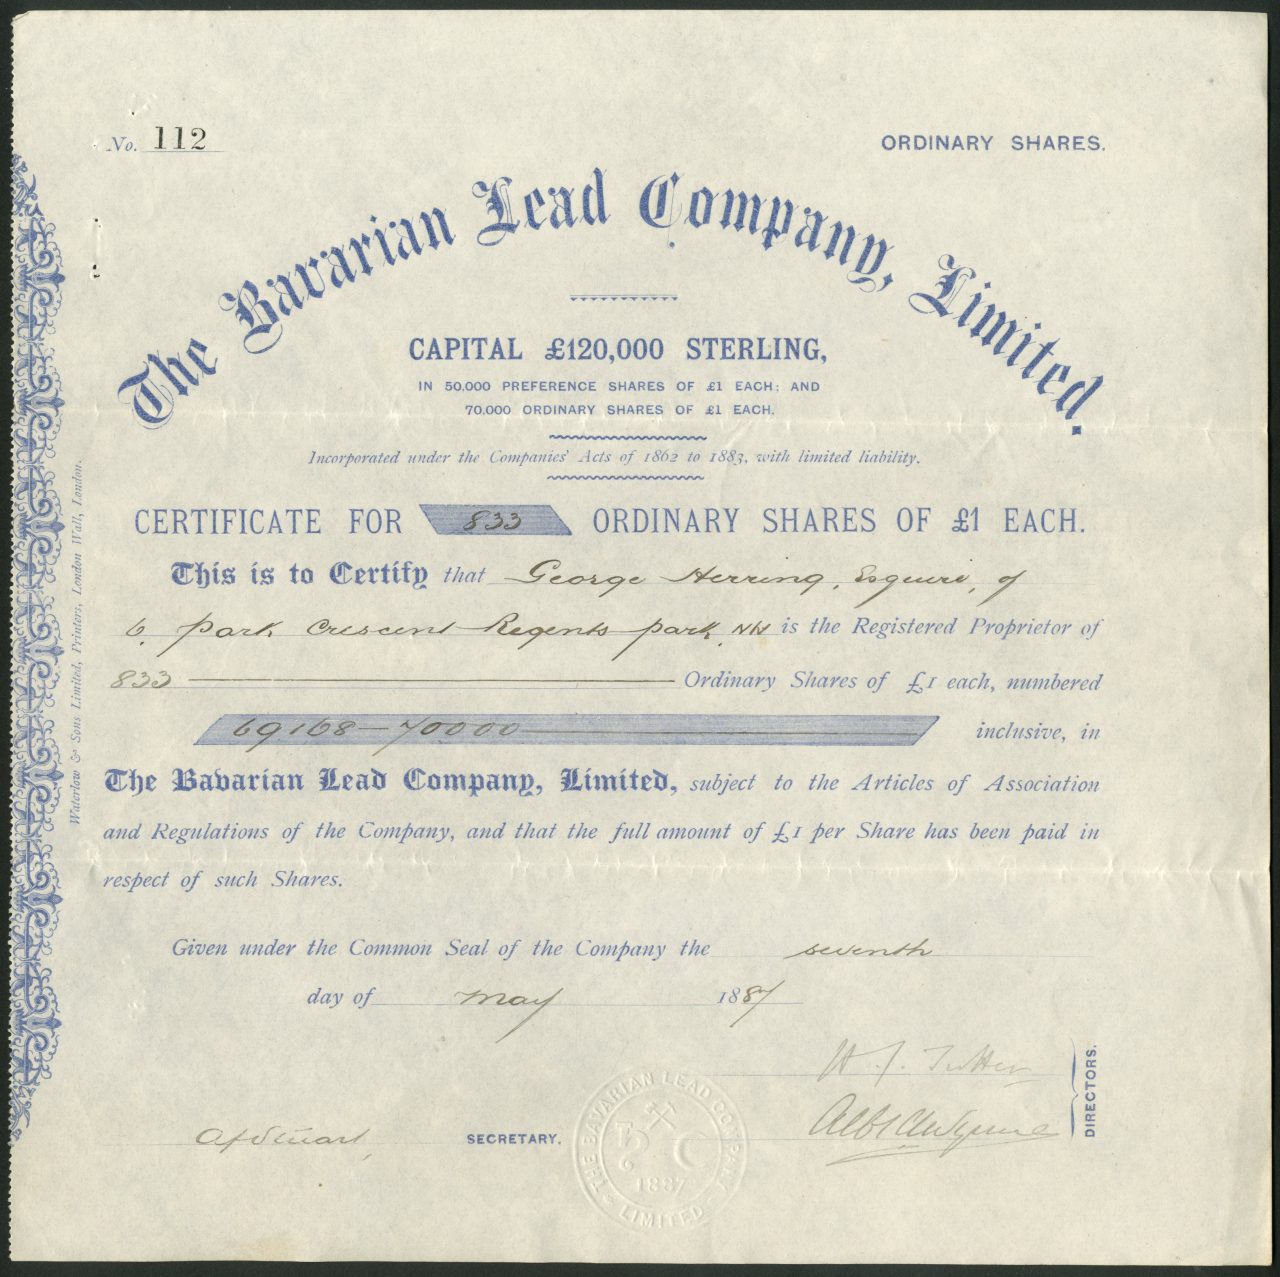 No. 112
ORDINARY SHARES.
The Bavarian Lead Company, Limited.
CAPITAL £120,000 STERLING,
IN 50,000 PREFERENCE SHARES OF £1 EACH; AND
70,000 ORDINARY SHARES OF £1 EACH.
Incorporated under the Companies' Acts of 1862 to 1883, with limited liability.
CERTIFICATE FOR 833 ORDINARY SHARES OF £1 EACH.
This is to Certify that George Herring, Esquire, of
6, Park Crescent Regents Park, NW is the Registered Proprietor of
833 Ordinary Shares of £1 each, numbered
69168–70000 inclusive, in
The Bavarian Lead Company, Limited, subject to the Articles of Association
and Regulations of the Company, and that the full amount of £1 per Share has been paid in
respect of such Shares.
Given under the Common Seal of the Company the seventh
day of May 1887
DIRECTORS.
SECRETARY.
THE BAVARIAN LEAD COMPANY LIMITED
1887
Waterlow & Sons Limited, Printers, London Wall, London.